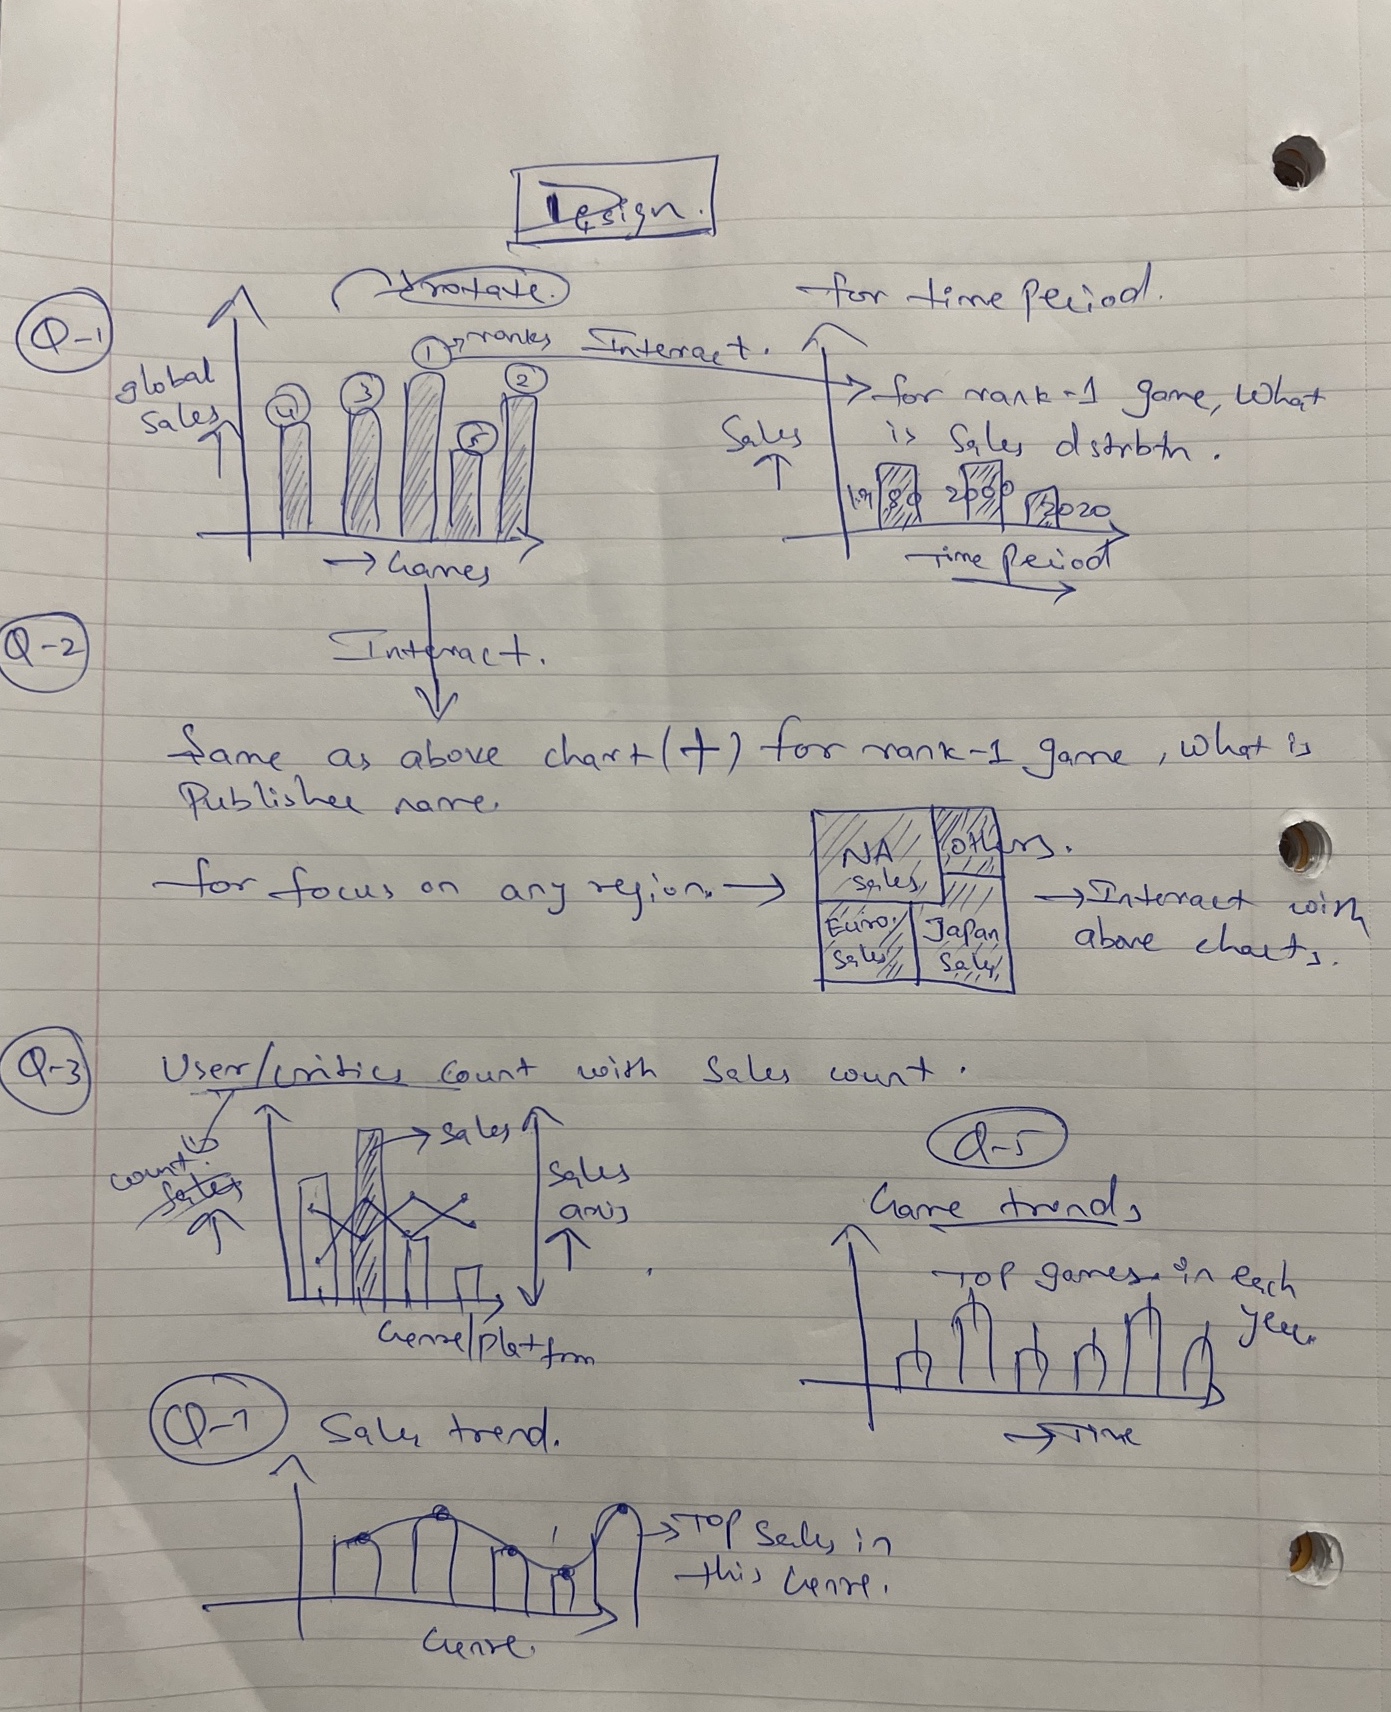 Design.
Q-1
rotate.
for time period.
global
sales
1 → ranks
Interact.
4
3
5
2
→ Games
Sales
for rank-1 game, What
is Sales dstrbtn.
1980
2000
2020
Time period
Q-2
Interact.
Same as above chart (+) for rank-1 game, What is
Publisher name.
for focus on any region. →
NA
sales
others.
Euro.
Sales
Japan
Sales
→ Interact with
above charts.
Q-3
User/critics count with Sales count.
count
Sales
→ Sales
Sales
axis
Genre/platform
Q-5
Game trends
Top games in each
year.
→ Time
Sales trend.
→ Top Sales in
this Genre.
Genre.